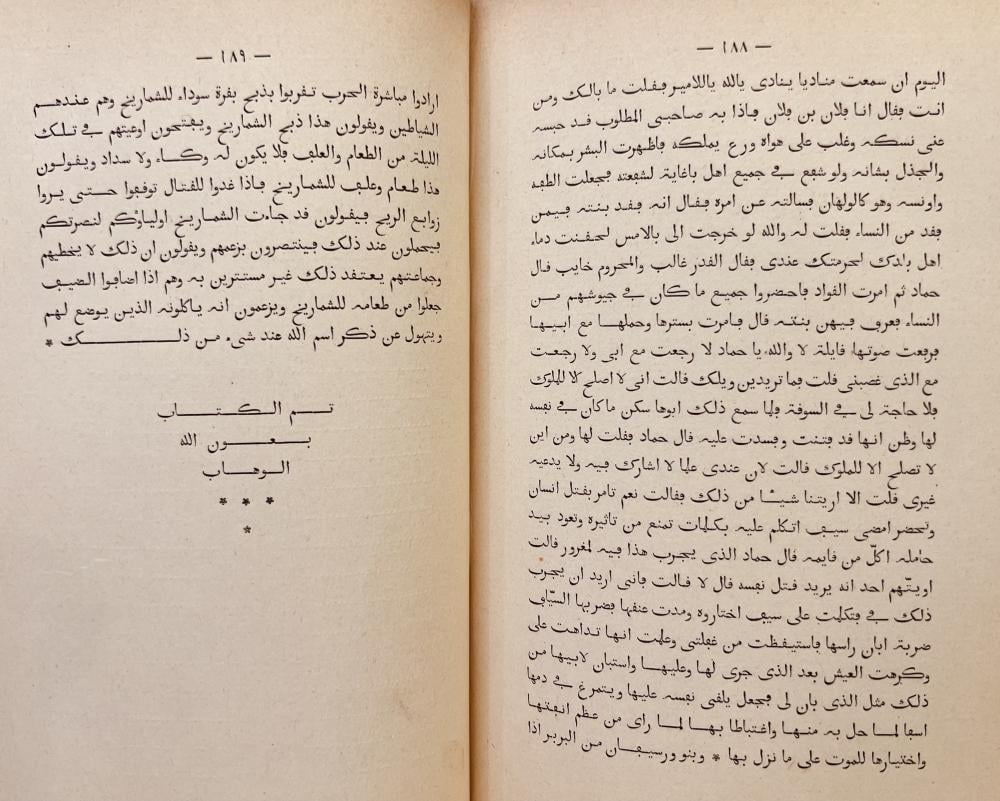 — ١٨٨ —
اليوم ان سمعت مناديا ينادى يالله ياللامير فقلت ما بالك ومن
انت فقال انا فلان بن فلان فاذا به صاحبى المطلوب قد حبسه
عنى نسكه وغلب على هواه ورع يملكه فاظهرت البشر بمكانه
والجذل بشانه ولو شفع فى جميع اهل باغاية لشفعته فجعلت الطفه
واونسه وهو كالولهان فسالته عن امره فقال انه فقد بنته فيمن
فقد من النساء فقلت له والله لو خرجت الى بالامس لحقنت دماء
اهل بلدك لحرمتك عندى فقال القدر غالب والمحروم خايب قال
حماد ثم امرت القواد فاحضروا جميع ما كان فى جيوشهم من
النساء فعرف فيهن بنته قال فامرت بسترها وحملها مع ابيها
فرفعت صوتها قايلة لا والله يا حماد لا رجعت مع ابى ولا رجعت
مع الذى غصبنى قلت فما تريدين ويلك قالت انى لا اصلح الا للملوك
فلا حاجة لى فى السوقة فلما سمع ذلك ابوها سكن ما كان فى نفسه
لها وظن انها قد فتنت وفسدت عليه قال حماد فقلت لها ومن اين
لا تصلح الا للملوك قالت لان عندى علما لا اشارك فيه ولا يدعيه
غيرى قلت الا اريتنا شيئا من ذلك فقالت نعم تامر بقتل انسان
وتحضر امضى سيف اتكلم عليه بكلمات تمنع من تاثيره وتعود بيد
حامله اكلّ من قايمه قال حماد الذى يجرب هذا فيه لمغرور قالت
اويتّهم احد انه يريد قتل نفسه قال لا قالت فانى اريد ان يجرب
ذلك فى فتكلمت على سيف اختاروه ومدت عنقها فضربها السيّاف
ضربة ابان راسها فاستيقظت من غفلتى وعلمت انها تداهت على
وكرهت العيش بعد الذى جرى لها وعليها واستبان لابيها من
ذلك مثل الذى بان لى فجعل يلقى نفسه عليها ويتمرغ فى دمها
اسفا لما حل به منها واغتباطا بها لما راى من عظم انفتها
واختيارها للموت على ما نزل بها * وبنو ورسيفان من البربر اذا
— ١٨٩ —
ارادوا مباشرة الحرب تقربوا بذبح بقرة سوداء للشماريخ وهم عندهم
الشياطين ويقولون هذا ذبح الشماريخ ويفتحون اوعيتهم فى تلك
الليلة من الطعام والعلف فلا يكون له وكاء ولا سداد ويقولون
هذا طعام وعلف للشماريخ فاذا غدوا للقتال توقفوا حتى يروا
زوابع الريح فيقولون قد جاءت الشماريخ اولياؤكم لنصرتكم
فيحملون عند ذلك فينتصرون بزعمهم ويقولون ان ذلك لا يخطيهم
وجماعتهم يعتقد ذلك غير مستترين به وهم اذا اضافوا الضيف
جعلوا من طعامه للشماريخ ويزعمون انه ياكلونه الذين يوضع لهم
ويتهول عن ذكر اسم الله عند شىء من ذلك *
تم الكتاب
بعون الله
الوهاب
* * *
*